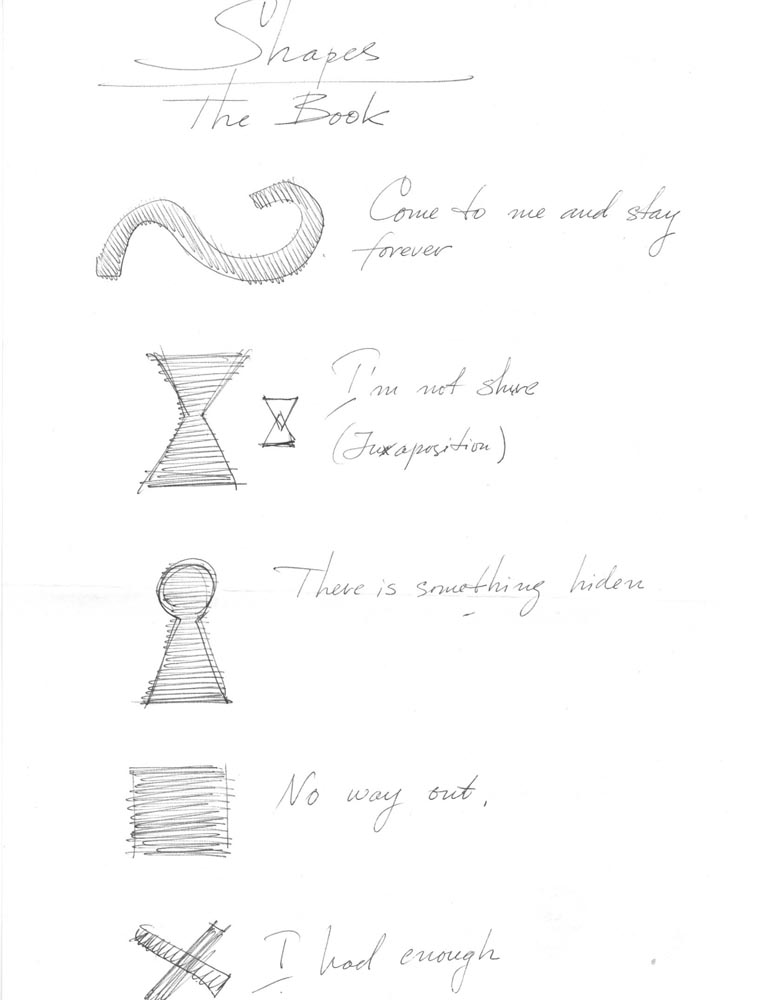 Shapes
The Book
Come to me and stay
forever
I'm not shure
(Juxaposition)
There is something hiden
No way out.
I had enough